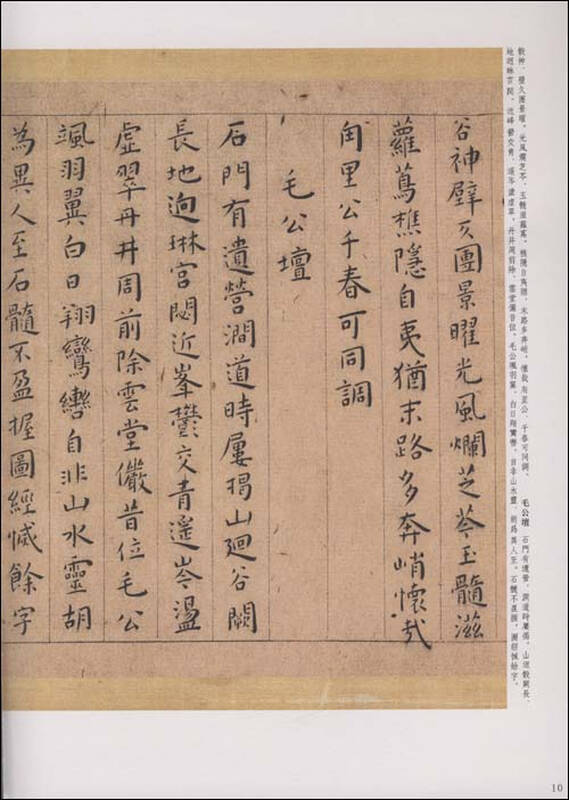 穀神、璧久團景曜、光風爛芝苓、玉髓滋蘿蔦、樵隱自夷猶、末路多奔峭、懷哉甪里公、千春可同調。 毛公壇 石門有遺營、澗道時屢揭、山迴穀闕長、
地迥琳宮閟、近峰鬱交青、遙岑盪虛翠、丹井周前除、雲堂儼昔位、毛公颯羽翼、白日翔鸞轡、自非山水靈、胡爲異人至、石髓不盈握、圖經慽餘字、
谷神璧久團景曜光風爛芝苓玉髓滋
蘿蔦樵隱自夷猶末路多奔峭懷哉
甪里公千春可同調
毛公壇
石門有遺營澗道時屢揭山迴谷闕
長地迥琳宮閟近峯鬱交青遙岑盪
虛翠丹井周前除雲堂儼昔位毛公
颯羽翼白日翔鸞轡自非山水靈胡
為異人至石髓不盈握圖經慽餘字
10